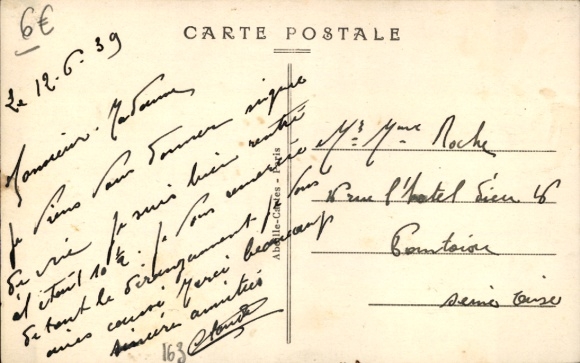 6€
CARTE POSTALE
Le 12.6.39
Monsieur. Madame
Je viens vous donner signe
de vie je suis bien rentré
il était 10 h ½. Je vous remercie
de tout le dérangement je vous
causé Merci beaucoup
sincère amitiés
Claude
163
Abeille-Cartes - Paris
Mr Mme Roche
16 rue l'hotel dieu 16
Pontoise
Seine Oise